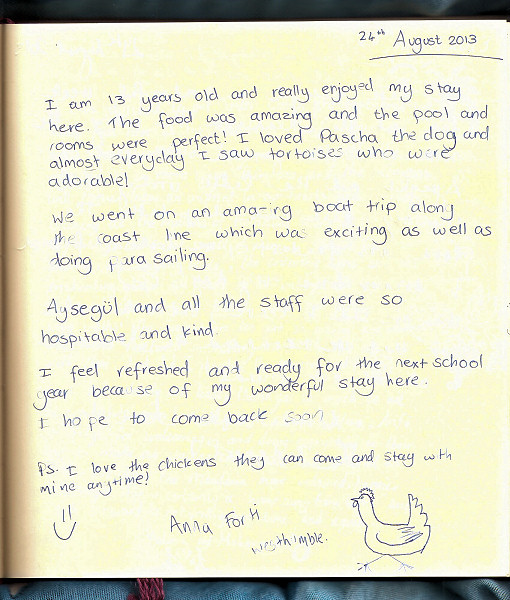 24th August 2013
I am 13 years old and really enjoyed my stay
here. The food was amazing and the pool and
rooms were perfect! I loved Pascha the dog and
almost everyday I saw tortoises who were
adorable!
We went on an amazing boat trip along
the coast line which was exciting as well as
doing para sailing.
Aysegül and all the staff were so
hospitable and kind.
I feel refreshed and ready for the next school
year because of my wonderful stay here.
I hope to come back soon
PS. I love the chickens they can come and stay with
mine anytime!
Anna Forti
Westhumble.